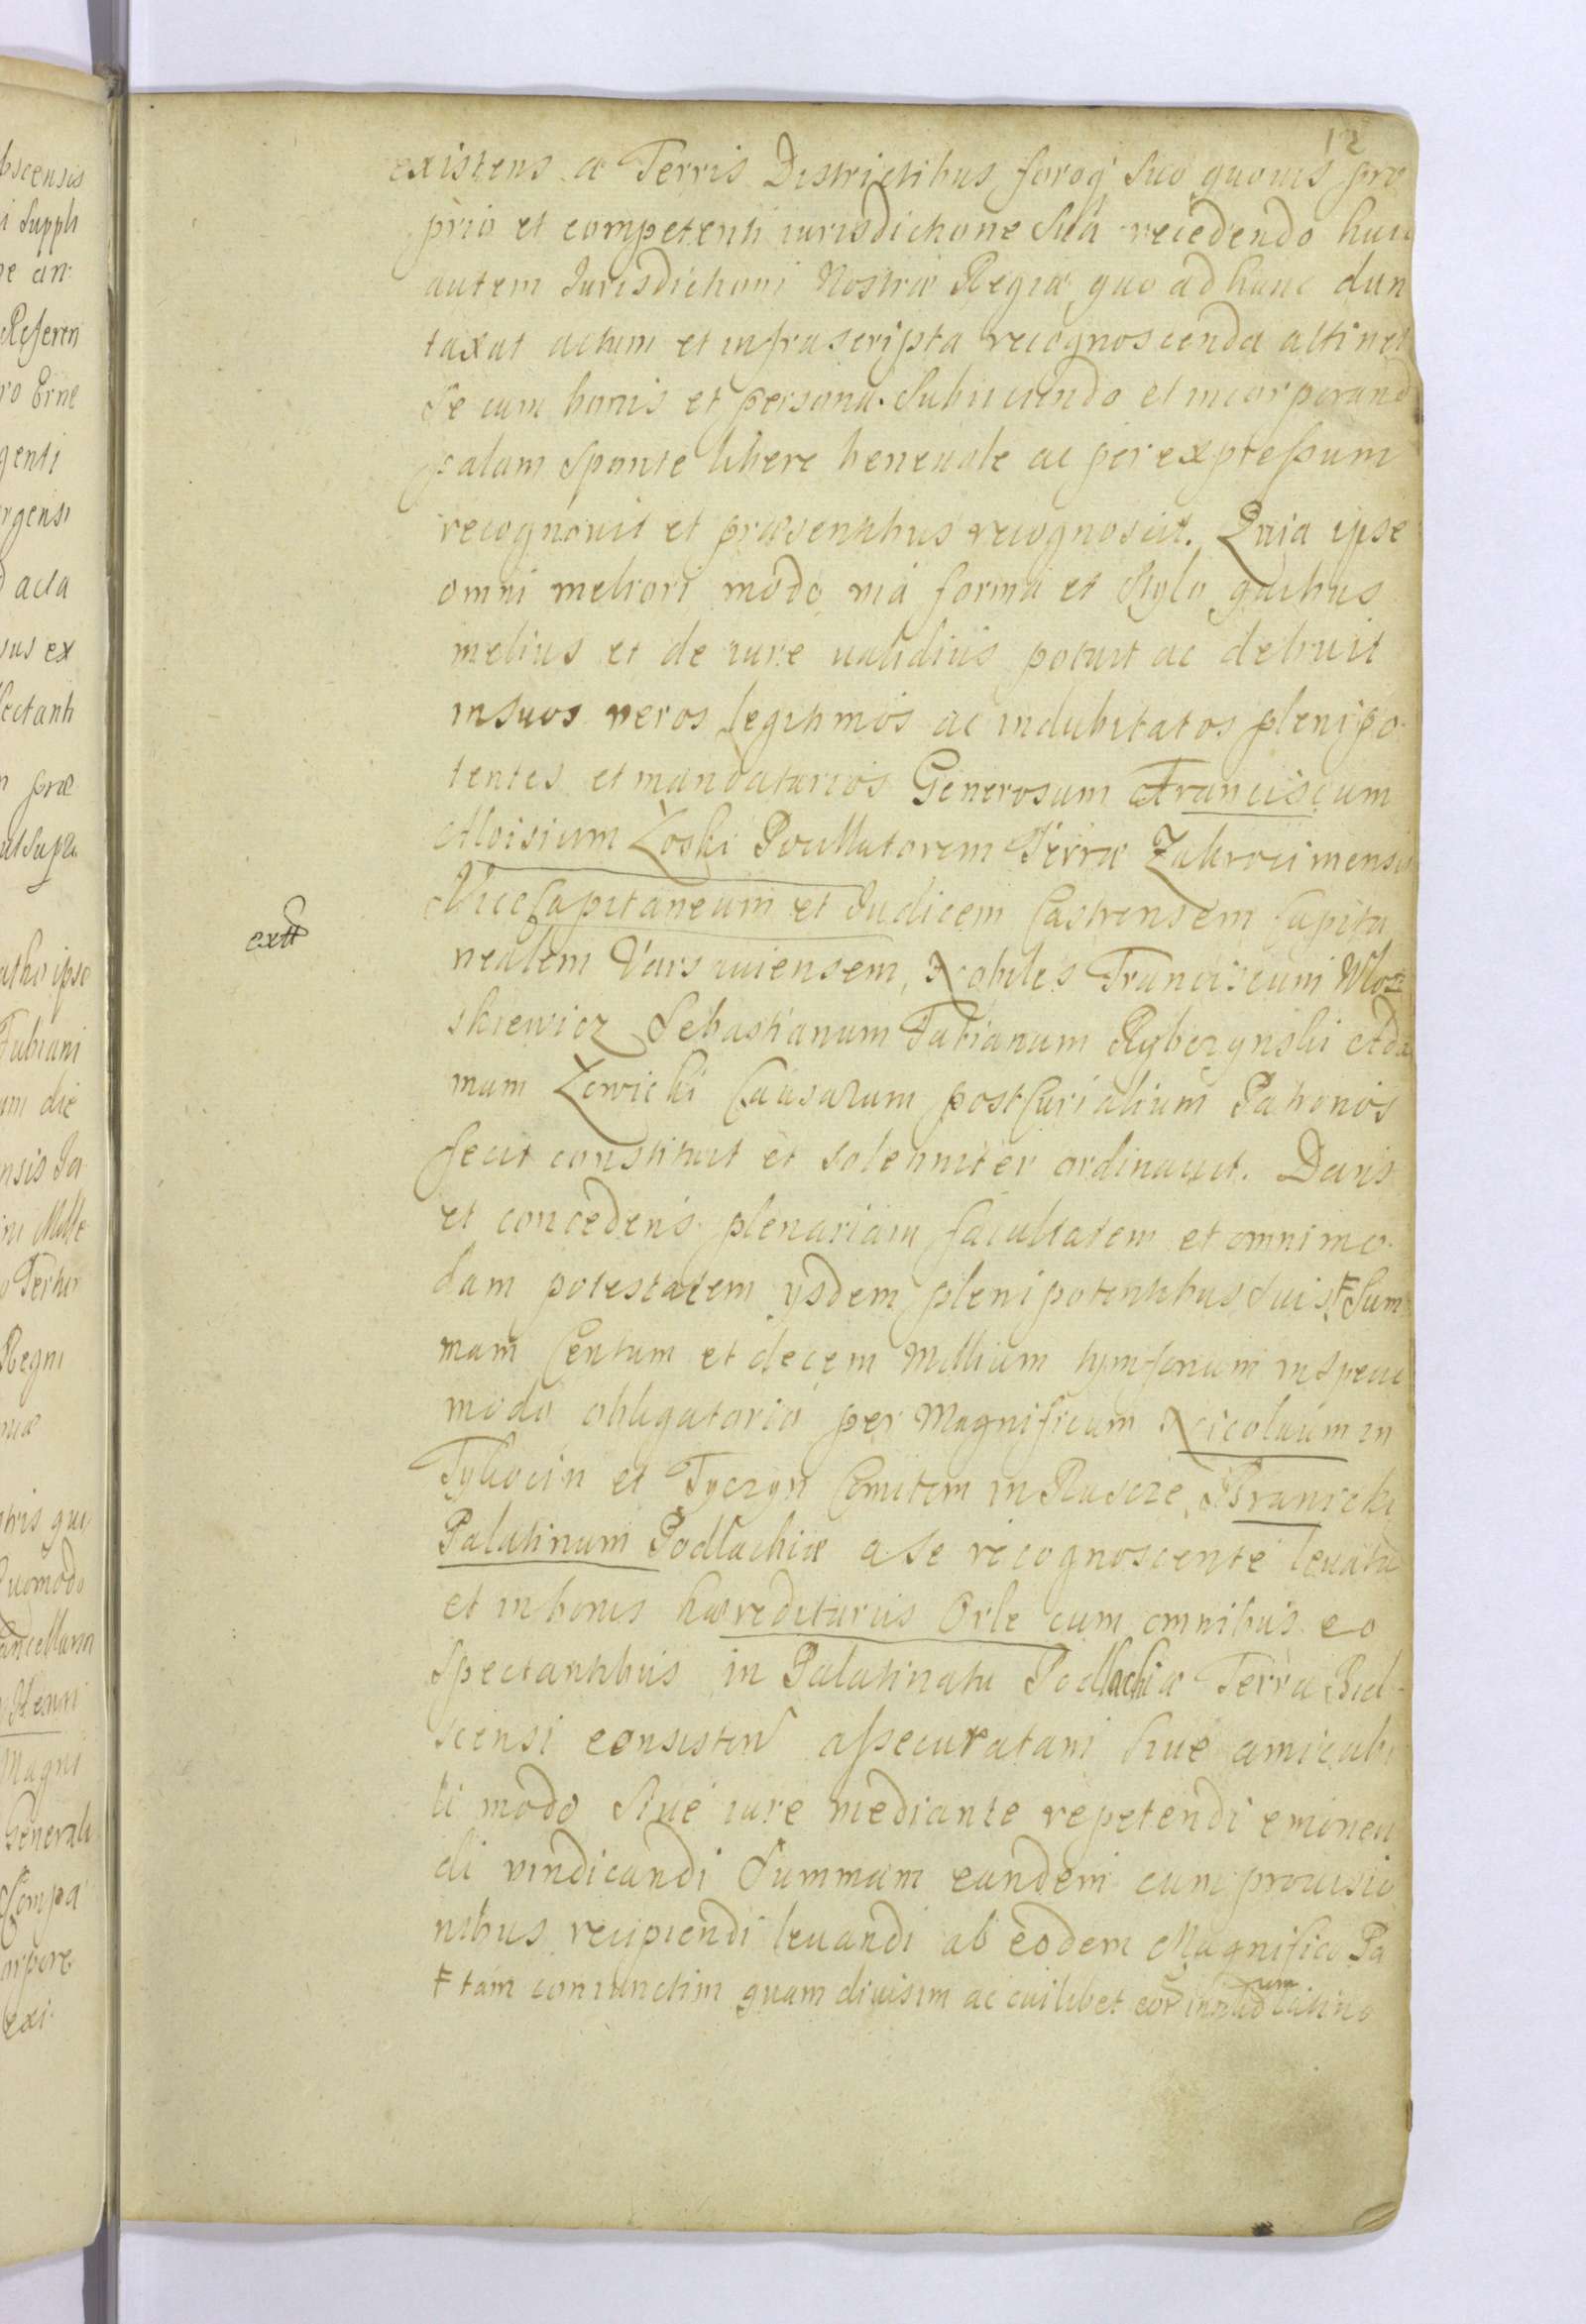 12
existens a Terris Districtibus foroq́ Suo quouis pro
prio et competenti iurisdictione Suá recedendo huic
autem Jurisdictioni Nostræ Regiæ quo ad hunc dun
taxat actum et infrascripta recognoscenda attinet
Se cum bonis et persona Subiiciendo et incorporand
palam Sponte libere beneuole ac per expressum
recognouit et præsentibus recognoscit. Quia ipse
omni meliori modo uiá formá et Stylo quibus
melius et de iure ualidius potuit ac debuit
in suos veros legitimos ac indubitatos plenipo
tentes et mandatarios Generosum Franciscum
Aloisium Zoski Pocillatorem Terræ Zakrocimensis
ViceCapitaneum et Judicem Castrensem Capita
nealem Varsauiensem, Nobiles Franciscum Wlosz
skiewicz Sebastianum Fabianum Rybczynski Ada
mum Zewicki Causarum postCurialium Patronos
fecit constituit et solenniter ordinauit. Dans
et concedens plenariam facultatem et omnimo
dam potestatem ysdem plenipotentibus Suis Ŧ Sum
mam Centum et decem Millium tymforum in specie
modo obligatorio per Magnificum Nicolaum in
Tykocin et Tyczyn Comitem in Ruscze Branicki
Palatinum Podlachiæ a Se recognoscente leuata
et in bonis hæreditariis Orle cum omnibus eo
Spectantibus in Palatinatu Podlachiæ Terra Biel
scensi consisten assecuratam Siue amicabi
li modo Siue iure mediante repetendi eminen
di vindicandi Summam eandem cum prouisio
nibus recipiendi leuandi ab eodem Magnifico Pa
Ŧ tam coniunctim quam diuisim ac cuilibet eor̃ in latino
extt